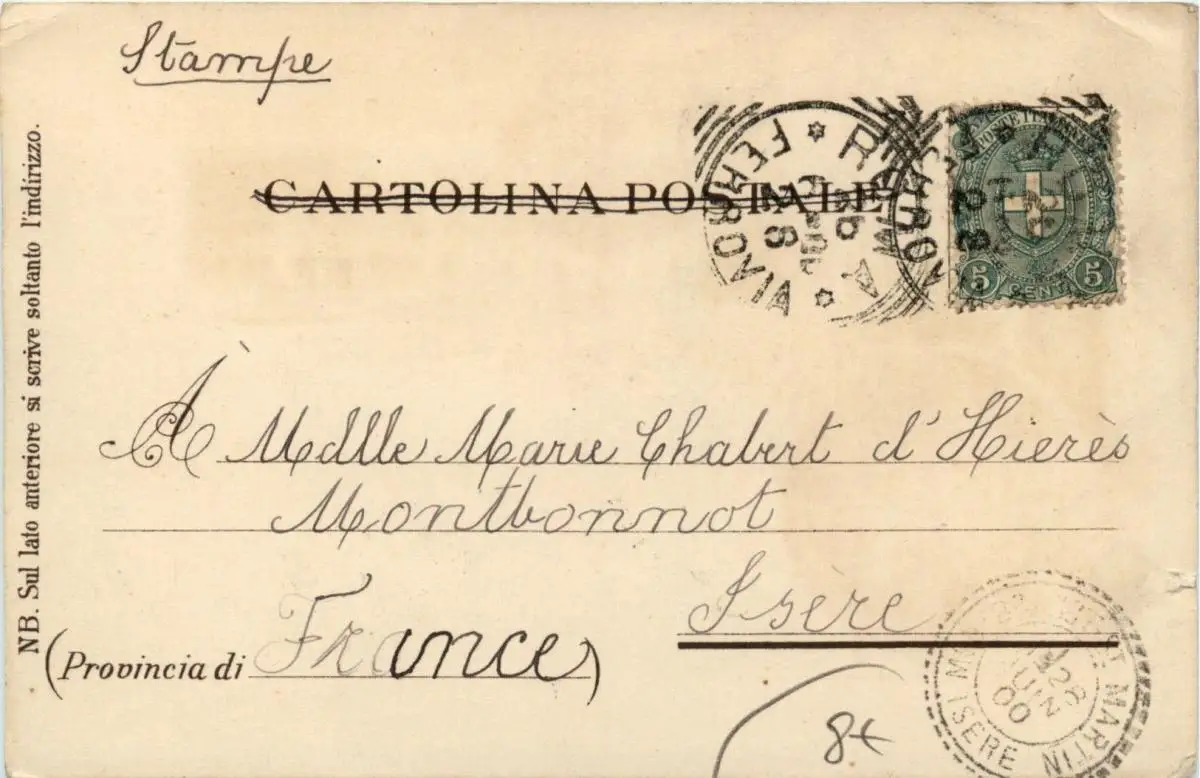 Stampe
CARTOLINA POSTALE
POSTE ITALIANE
5 CENT 5
ROMA
FERROVIA
À Mdlle Marie Chabert d'Hierès
Montbonnot
Isère
(Provincia di France)
NB. Sul lato anteriore si scrive soltanto l'indirizzo.
MARTIN
ISERE
28
JUIN
00
8€